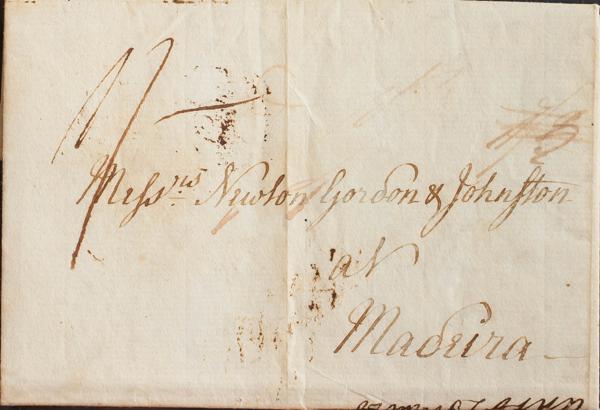 Mess.rs Newton Gordon & Johnston
at
Madeira